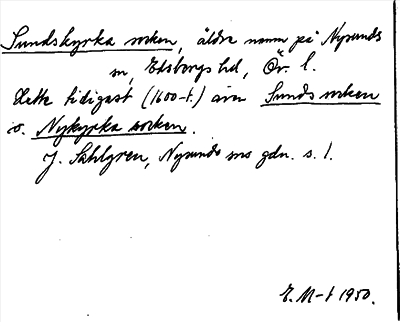 Sundskyrka socken, äldre namn på Nysunds
sn, Edsbergs hd, Ör. l.
Hette tidigast (1600-t.) även Sunds socken
o. Nykyrka socken.
J. Sahlgren, Nysunds sns gdn. s. 1.
E. M-t 1950.